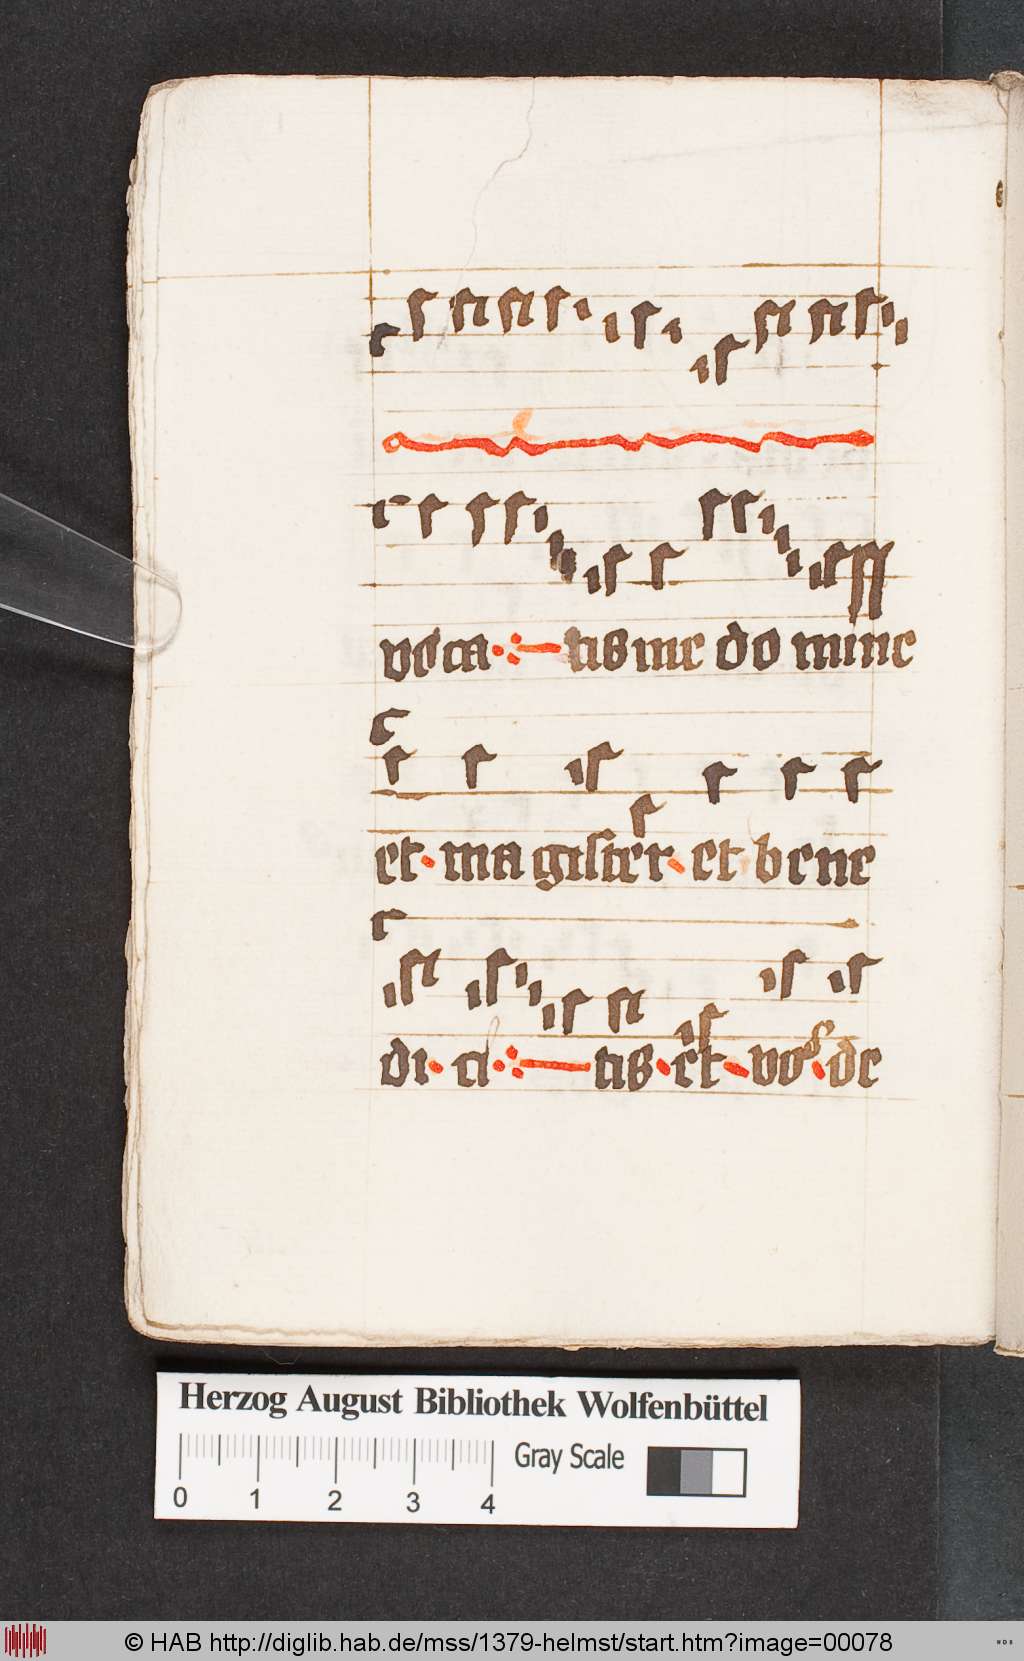 voca tis me do mine
et ma gister et bene
di ci tis et vos de
Herzog August Bibliothek Wolfenbüttel
Gray Scale
0 1 2 3 4
© HAB http://diglib.hab.de/mss/1379-helmst/start.htm?image=00078